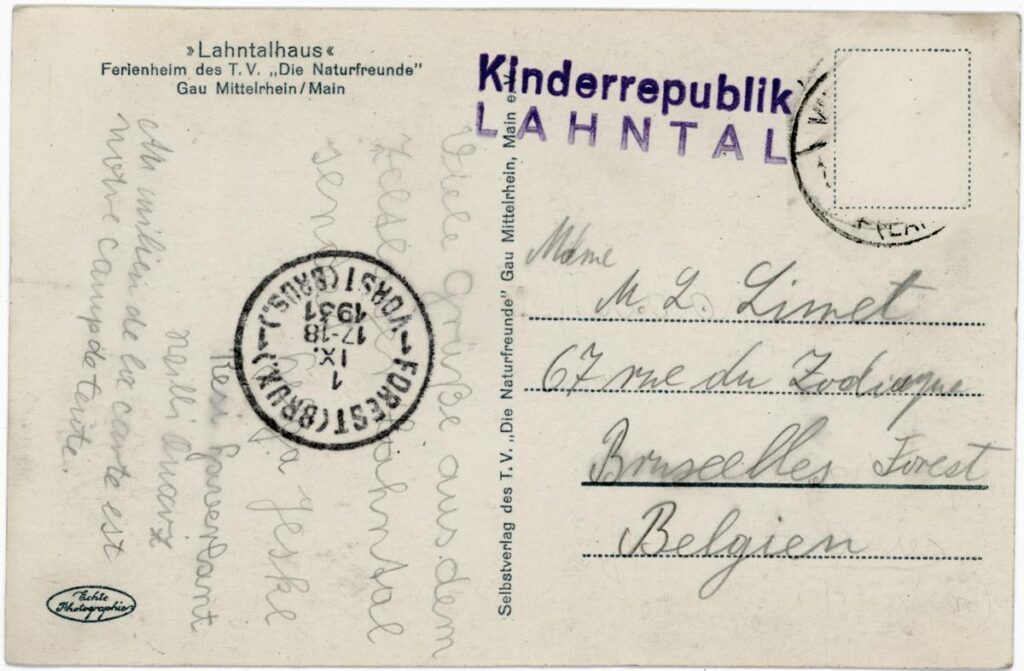 »Lahntalhaus«
Ferienheim des T. V. „Die Naturfreunde"
Gau Mittelrhein/Main
Kinderrepublik
LAHNTAL
Viele Grüße aus dem
Zeltlager Lahntal
Helga Jeske
Resi
neilli quarz
Au milieu de la carte est
notre camp de tente.
FOREST (BRUX.)
VORST (BRUS.)
1
IX.
17-18
1931
Selbstverlag des T. V. „Die Naturfreunde" Gau Mittelrhein, Main e. V.
Mdme
M. L. Limet
67 rue du Zodiaque
Bruxelles Forest
Belgien
Echte
Photographie